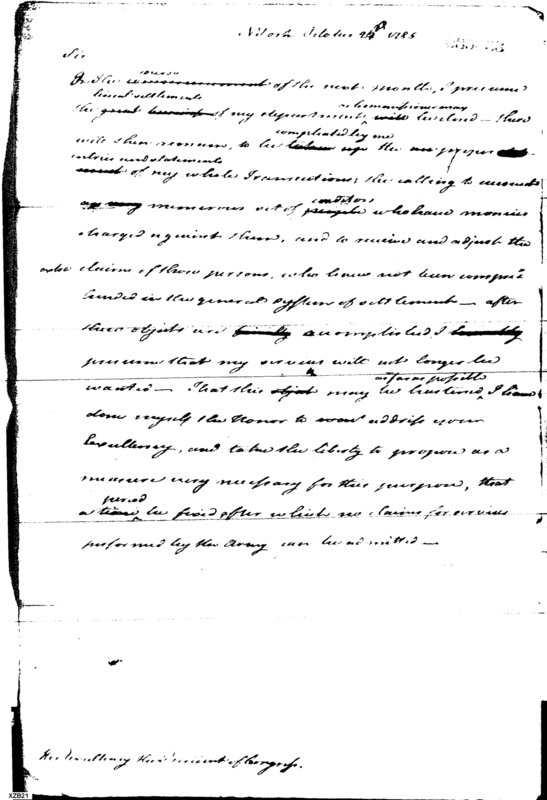 N York October 24th 1785
Sir
In the course of the next month, I presume
the final settlements of my department, will be closed — there
will then remain, to be completed by me the
entries and statements
of my whole Transactions; the calling to account
a numerous set of people creditors who have monies
charged against them, and to receive and adjust the
claims of those persons, who have not been compre
hended in the general system of settlement — after
these objects are finally accomplished I humbly
presume that my services will not longer be
wanted — That this object may be hastened as far as possible, I have
done myself the Honor to address your
Excellency, and take the liberty to propose as a
measure very necessary for this purpose, that
a time period be fixed after which no claims for services
performed by the Army can be admitted —
His Excellency the President of Congress.
XZB21